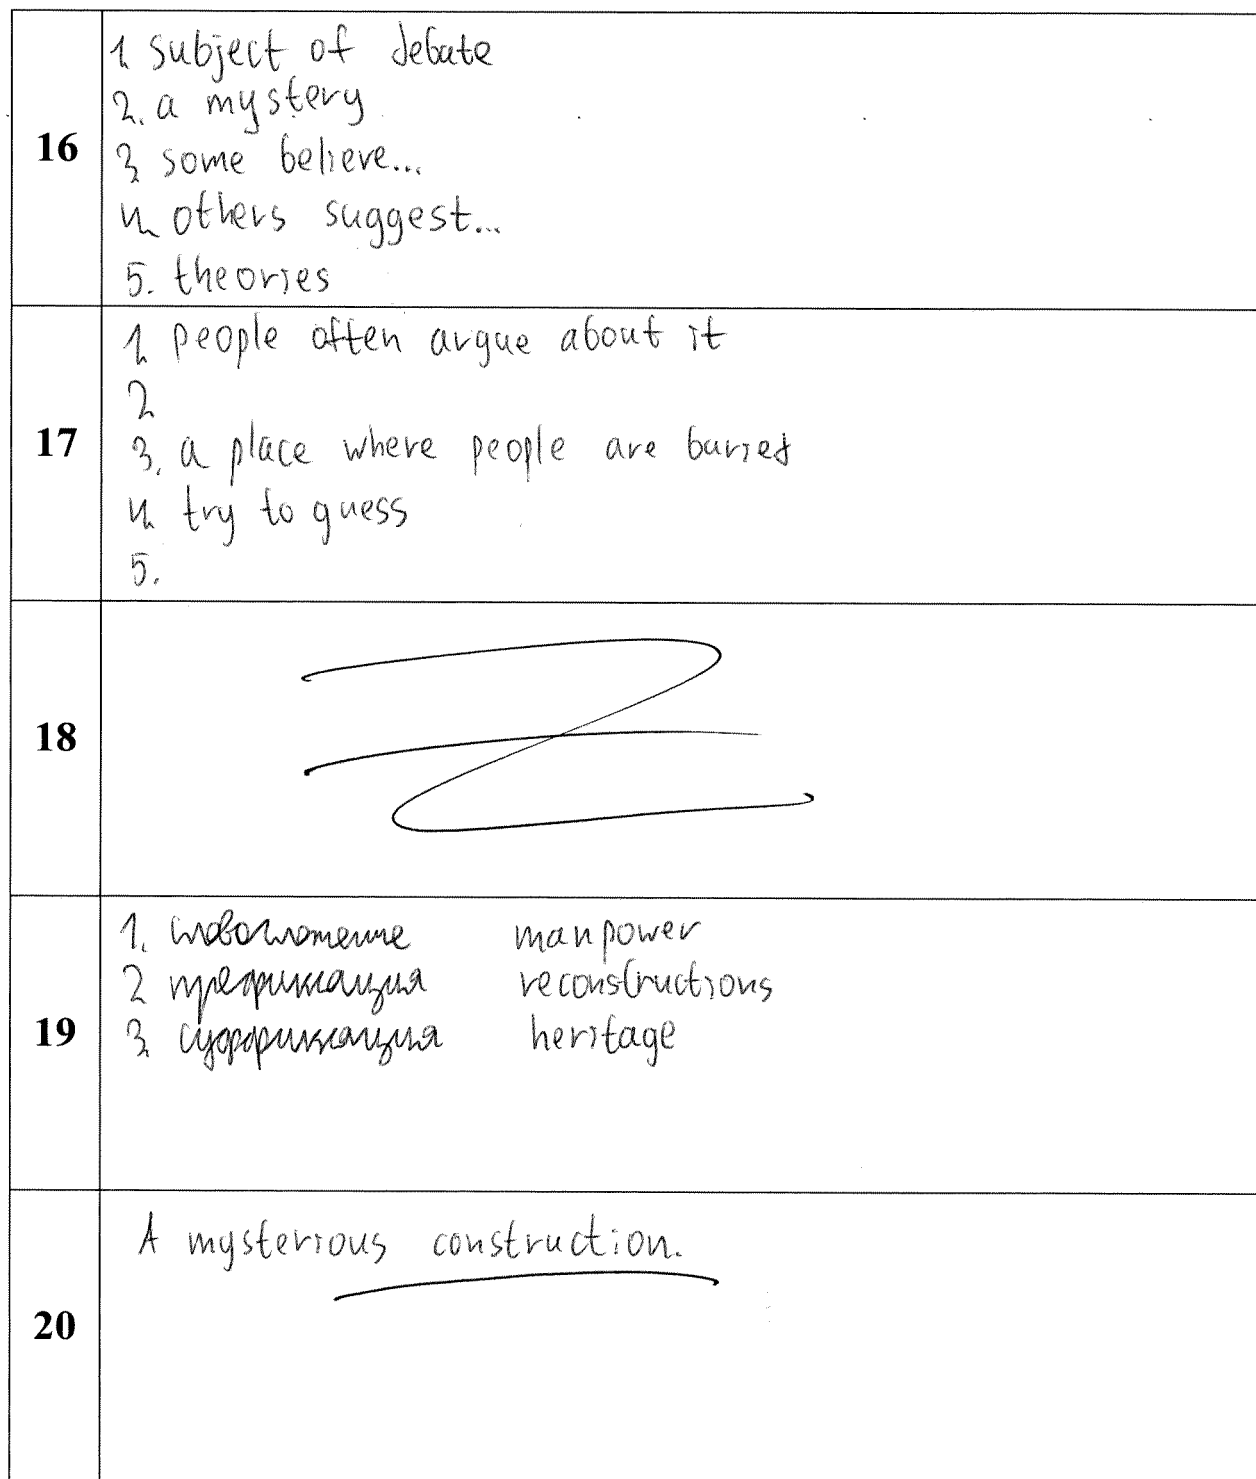 16
1. subject of debate
2. a mystery
3. some believe...
4. others suggest...
5. theories
17
1. people often argue about it
2
3. a place where people are buried
4. try to guess
5.
18
19
1. словосложение manpower
2 префиксация reconstructions
3. суффиксация heritage
20
A mysterious construction.